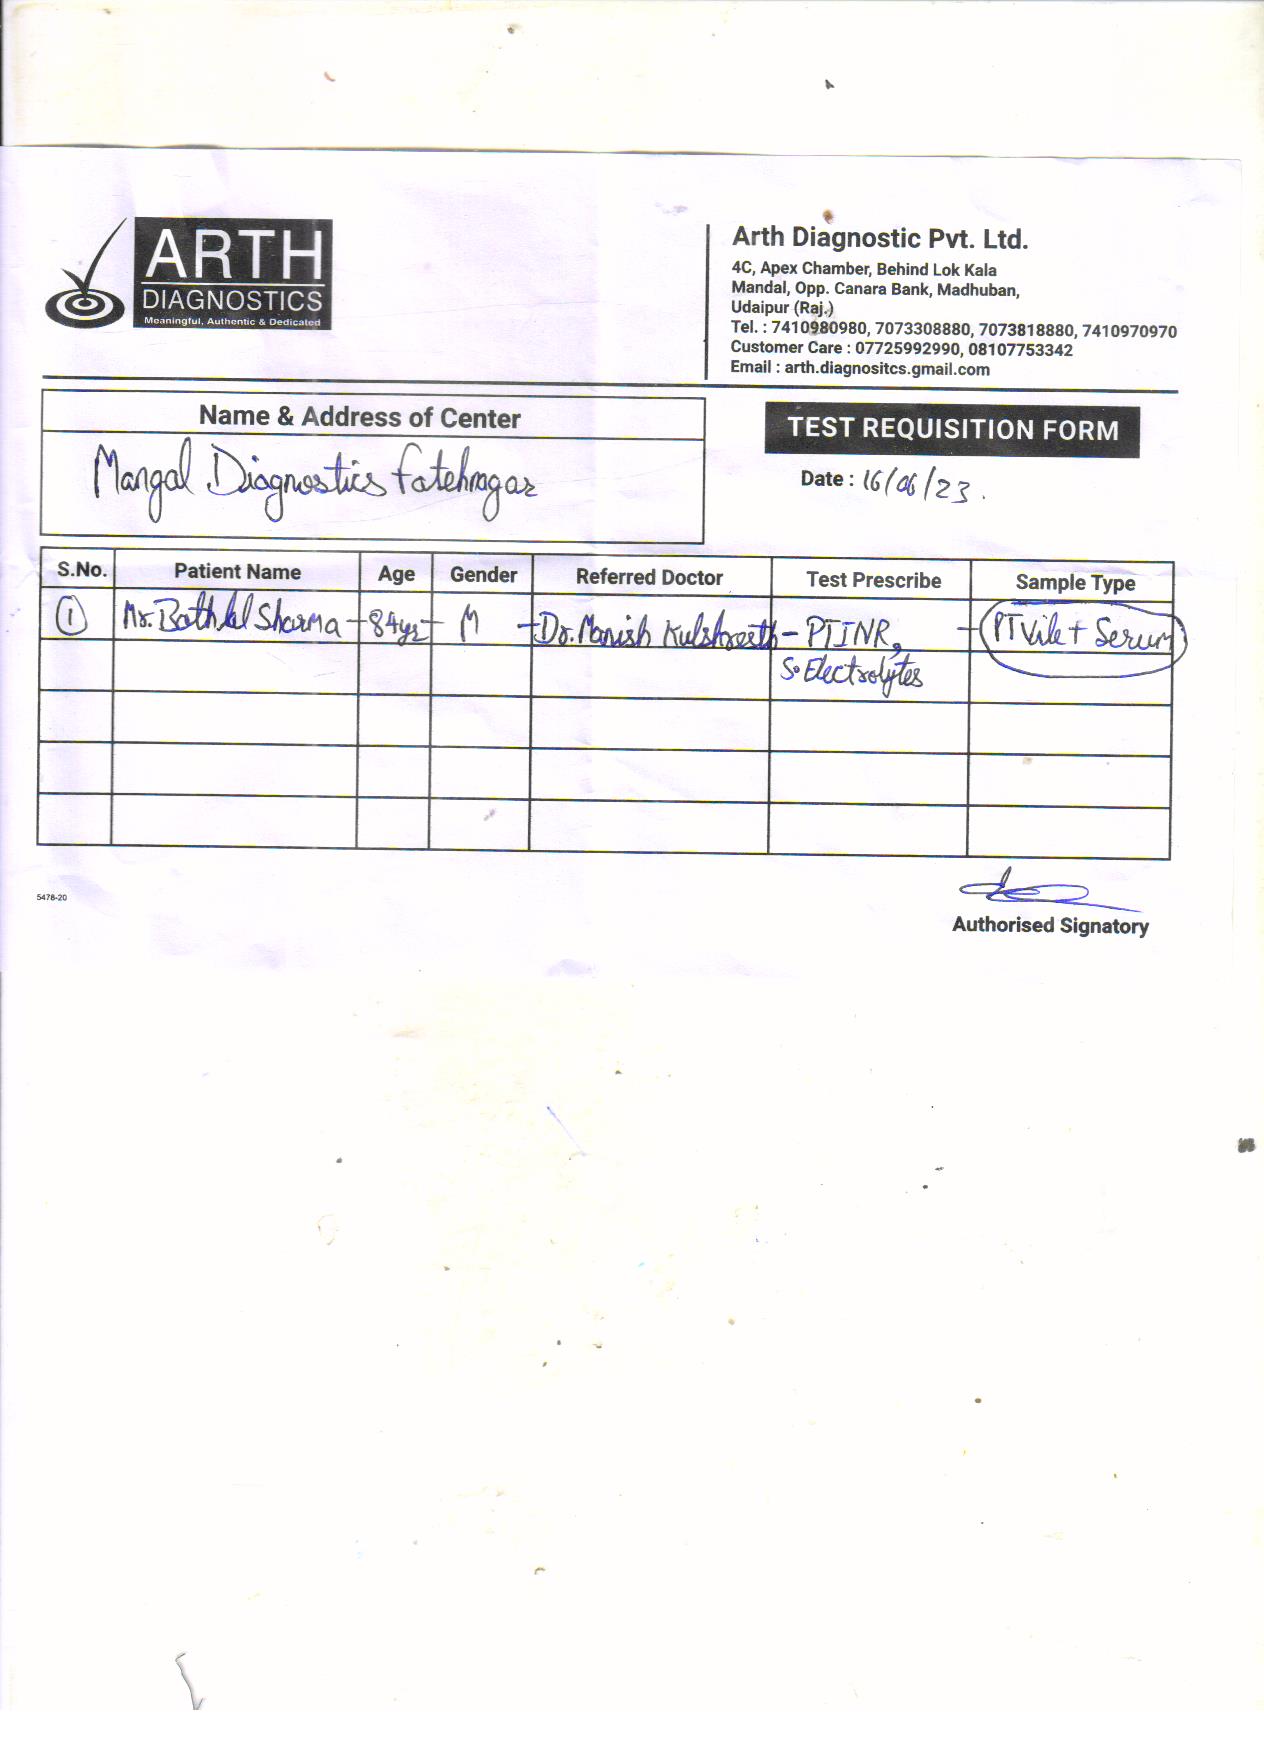 ARTH
DIAGNOSTICS
Meaningful, Authentic & Dedicated
Arth Diagnostic Pvt. Ltd.
4C, Apex Chamber, Behind Lok Kala
Mandal, Opp. Canara Bank, Madhuban,
Udaipur (Raj.)
Tel. : 7410980980, 7073308880, 7073818880, 7410970970
Customer Care : 07725992990, 08107753342
Email : arth.diagnositcs.gmail.com
Name & Address of Center
Mangal Diagnostics Fatehnagar
TEST REQUISITION FORM
Date : 16/06/23.
S.No. Patient Name Age Gender Referred Doctor Test Prescribe Sample Type
1 Mr. Sharma - 84yr - M - Dr. Manish Kulshresth - PTINR, - PT Vile + Serum
S. Electrolytes
5478-20
Authorised Signatory